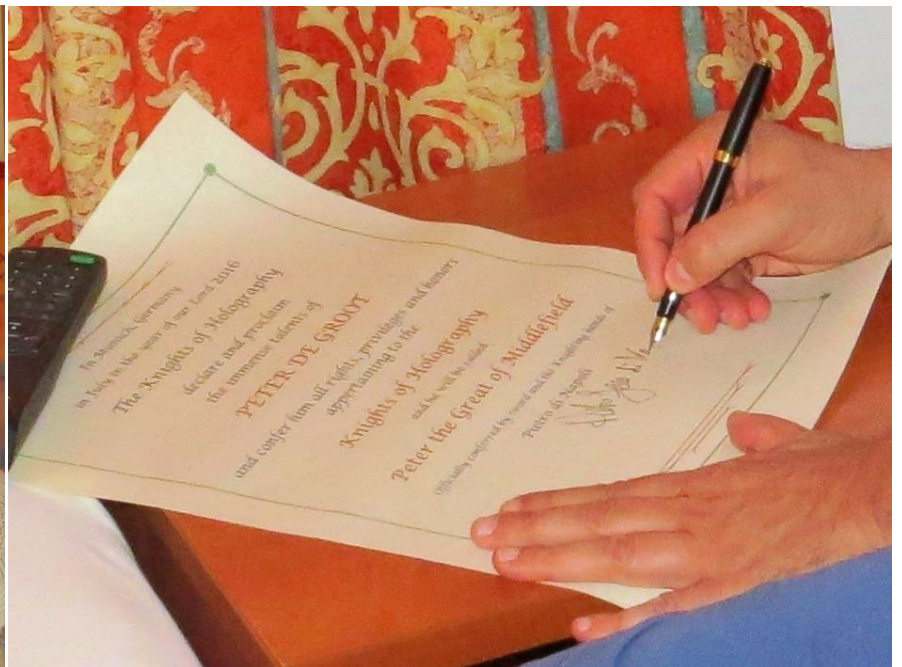 In Munich, Germany
in July in the year of our Lord 2016
The Knights of Holography
declare and proclaim
the immense talents of
PETER DE GROOT
and confer him all rights, privileges and honors
appertaining to the
Knights of Holography
and he will be called
Peter the Great of Middlefield
Officially conferred by sword and the Knighting hands of
Pietro di Napoli